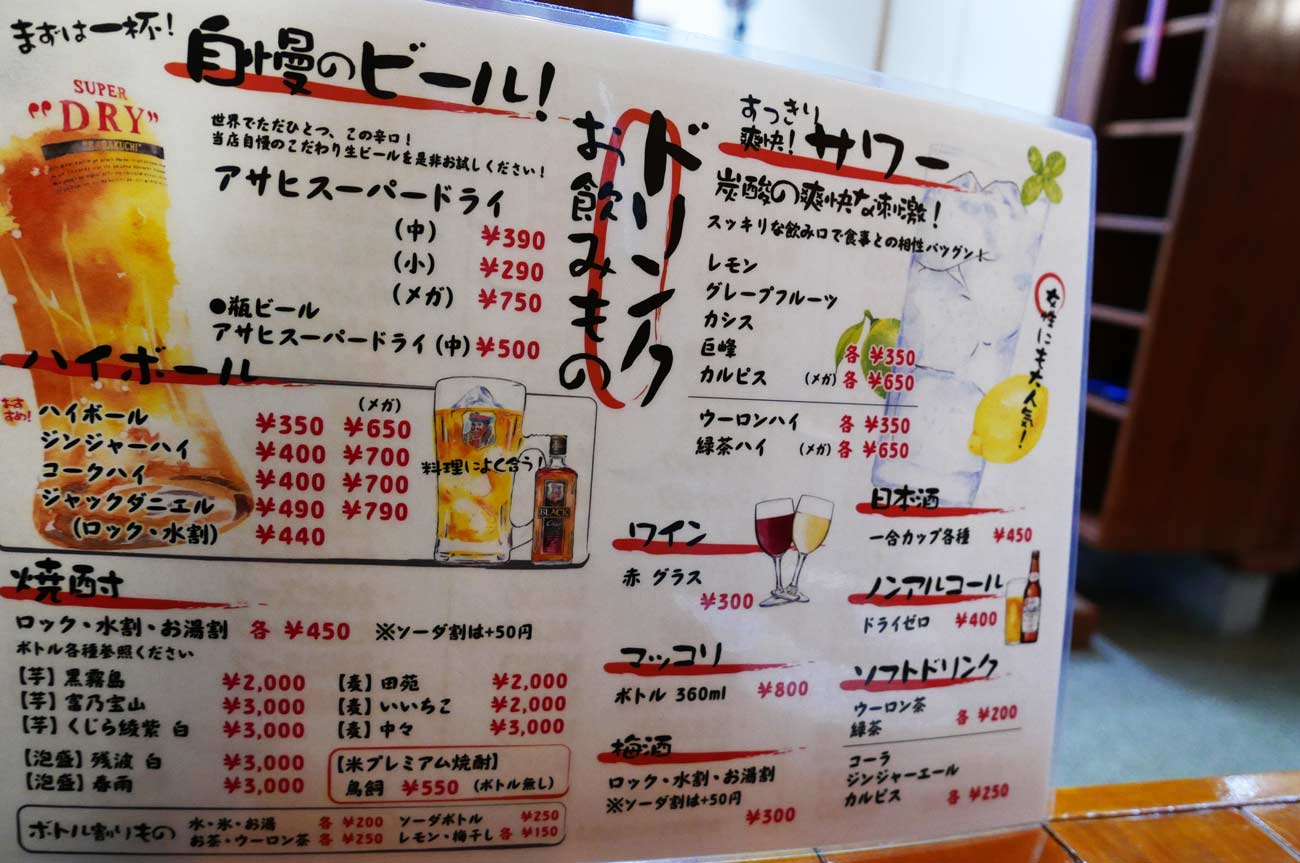 まずは一杯!
自慢のビール!
SUPER
"DRY"
世界でただひとつ、この辛口!
当店自慢のこだわり生ビールを是非お試しください!
アサヒスーパードライ
(中) ¥390
(小) ¥290
(メガ) ¥750
●瓶ビール
アサヒスーパードライ(中) ¥500
ハイボール
おすすめ!
(メガ)
ハイボール ¥350 ¥650
ジンジャーハイ ¥400 ¥700
コークハイ ¥400 ¥700
ジャックダニエル ¥490 ¥790
(ロック・水割) ¥440
料理によく合う!
BLACK
焼酎
ロック・水割・お湯割 各 ¥450 ※ソーダ割は+50円
ボトル各種参照ください
【芋】黒霧島 ¥2,000
【芋】富乃宝山 ¥3,000
【芋】くじら綾紫 白 ¥3,000
【泡盛】残波 白 ¥3,000
【泡盛】春雨 ¥3,000
【麦】田苑 ¥2,000
【麦】いいちこ ¥2,000
【麦】中々 ¥3,000
【米プレミアム焼酎】
鳥飼 ¥550 (ボトル無し)
ボトル割りもの
水・氷・お湯 各 ¥200 ソーダボトル ¥250
お茶・ウーロン茶 各 ¥250 レモン・梅干し 各 ¥150
ドリンク
お飲みもの
すっきり
爽快! サワー
炭酸の爽快な刺激!
スッキリな飲み口で食事との相性バツグン!
レモン
グレープフルーツ
カシス
巨峰 各 ¥350
カルピス (メガ) 各 ¥650
ウーロンハイ 各 ¥350
緑茶ハイ (メガ) 各 ¥650
女性にも大人気!
ワイン
赤 グラス
¥300
マッコリ
ボトル 360ml ¥800
梅酒
ロック・水割・お湯割
※ソーダ割は+50円
¥300
日本酒
一合カップ各種 ¥450
ノンアルコール
ドライゼロ ¥400
ソフトドリンク
ウーロン茶
緑茶 各 ¥200
コーラ
ジンジャーエール
カルピス 各 ¥250